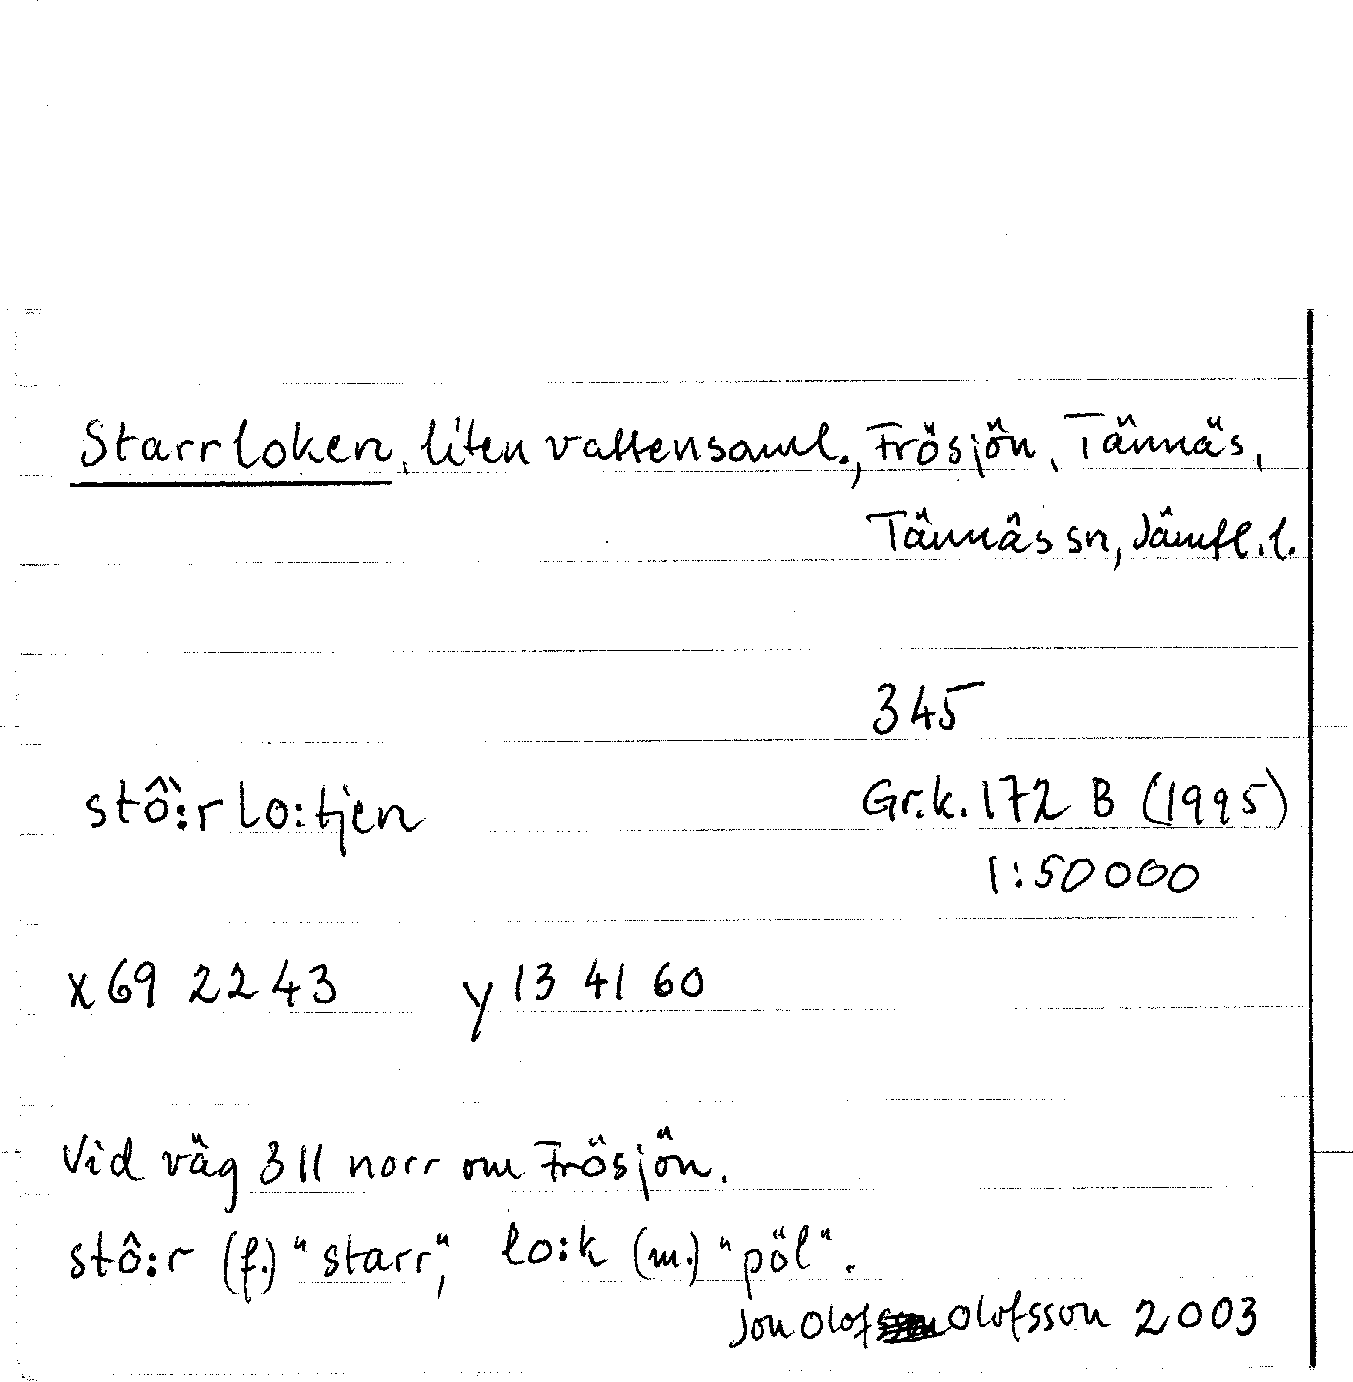 Starrloken, liten vattensaml., Frösjön, Tännäs,
Tännäs sn, Jämtl. l.
345
stồ:rlo:tjen Gr.k. 172 B (1995)
1:50000
x 69 22 43 y 13 41 60
Vid väg 311 norr om Frösjön.
stô:r (f.) "starr", lo:k (m.) "pöl".
Jon Olof Olofsson 2003